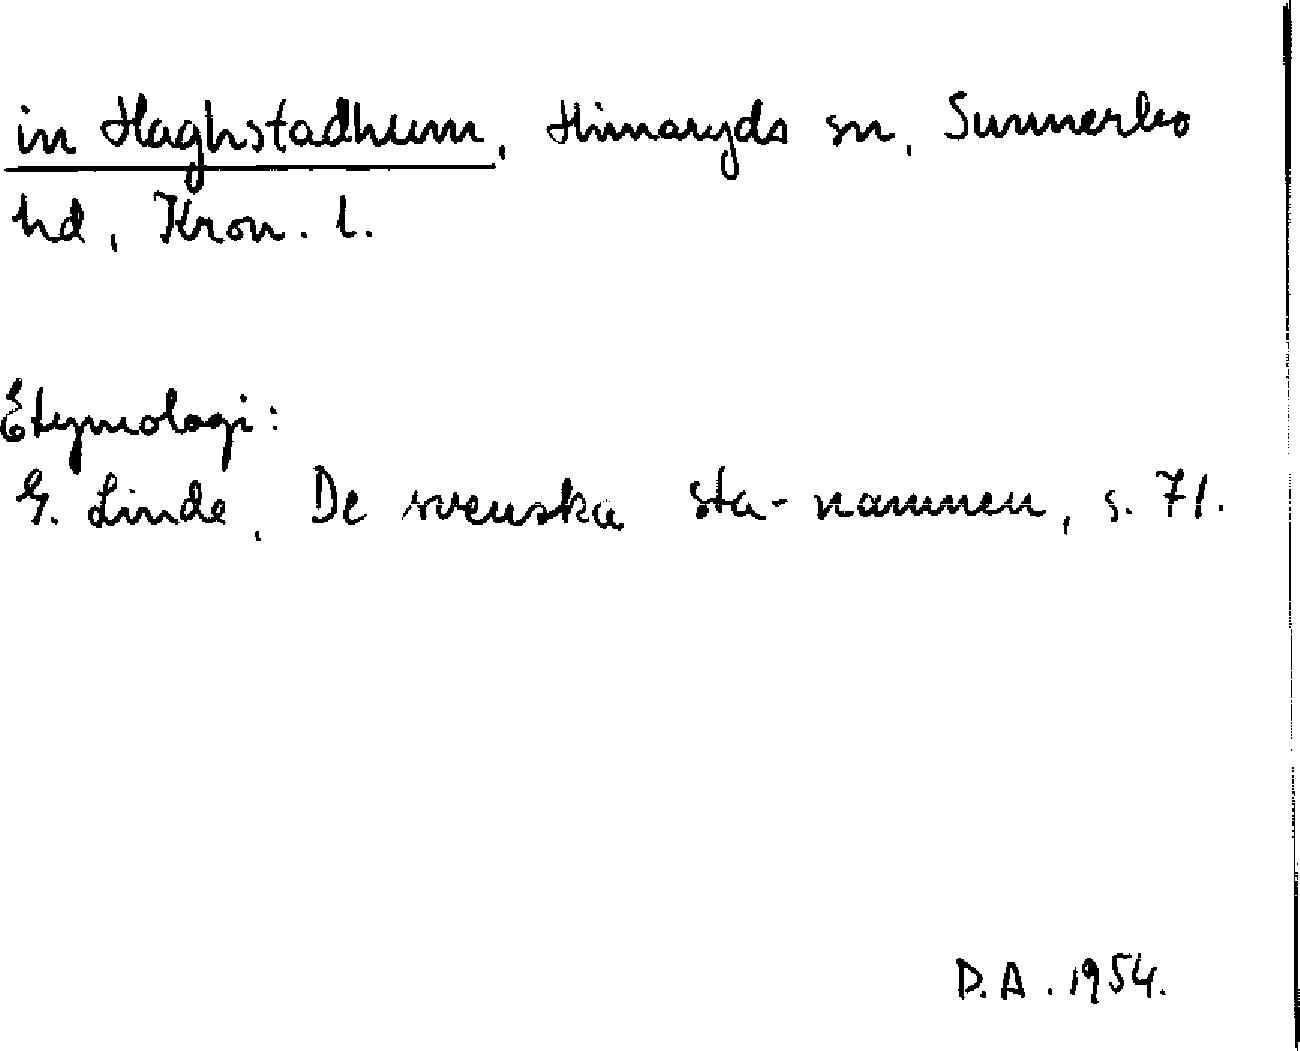 in Haghstadhum, Hinnaryds sn, Sunnerbo
hd, Kron. l.
Etymologi:
G. Linde, De svenska sta-namnen, s. 71.
D.A. 1954.